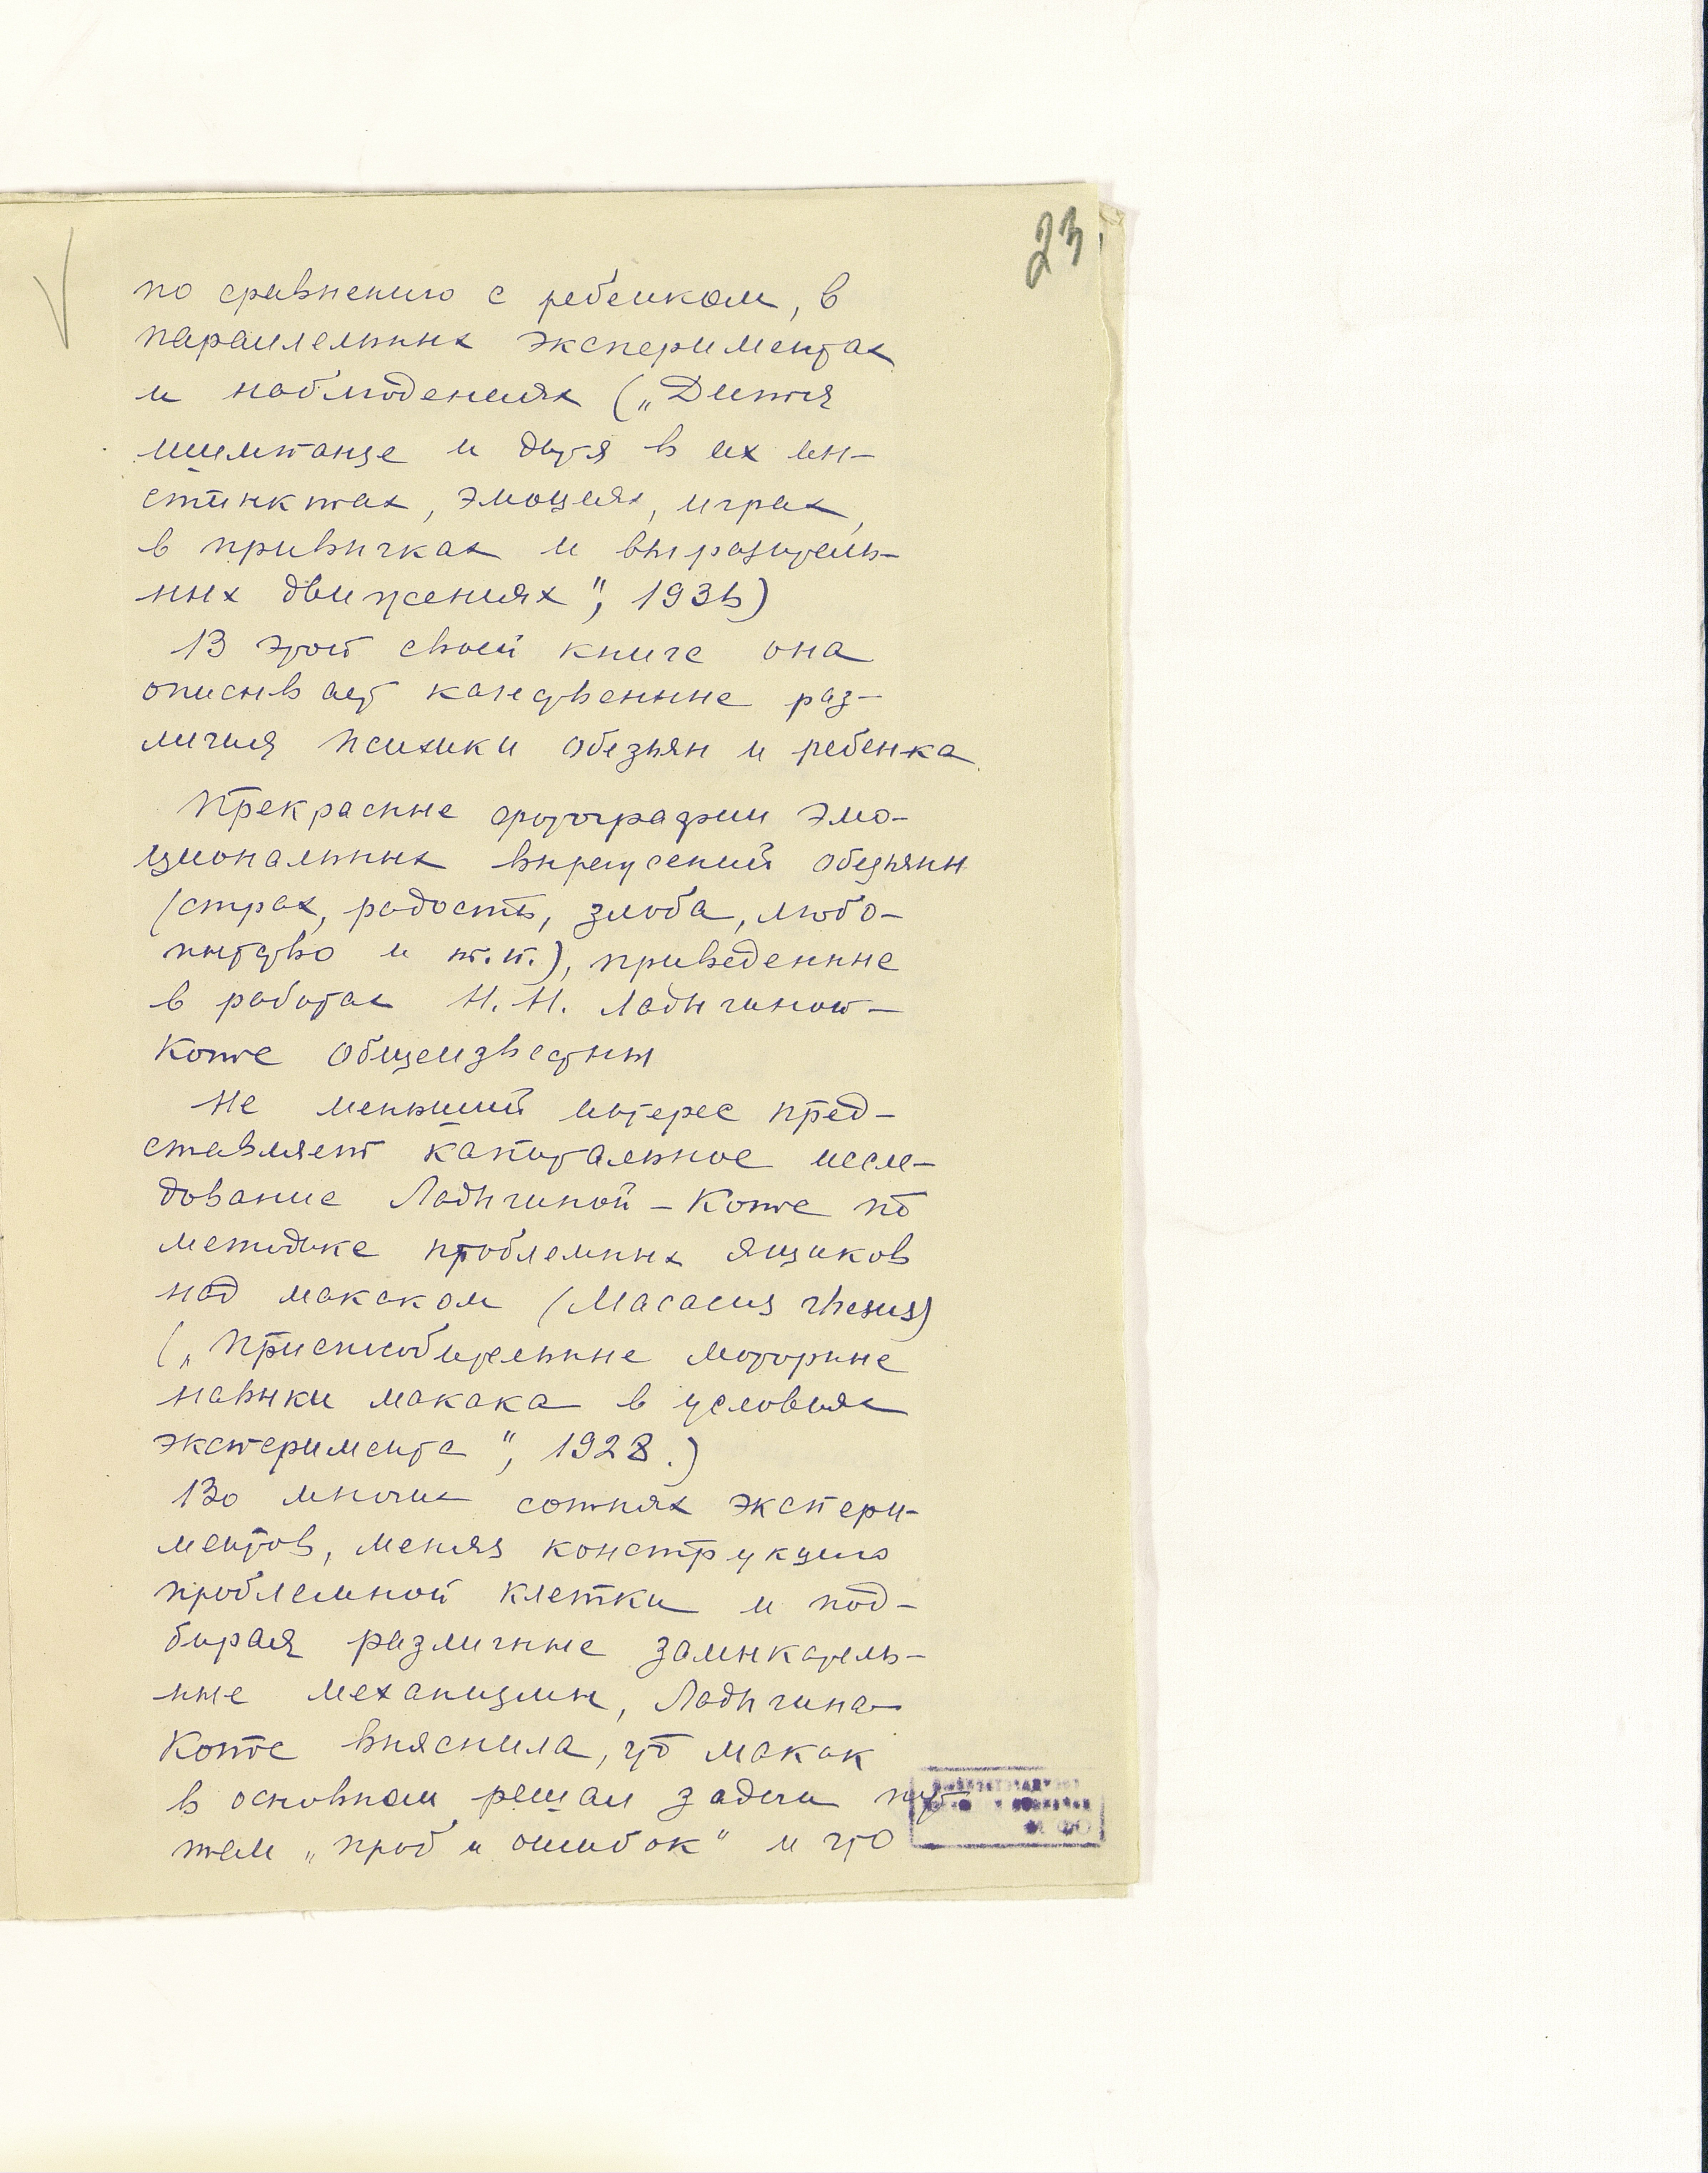 23
по сравнению с ребенком, в
параллельных экспериментах
и наблюдениях („Дитя
шимпанзе и дитя в их ин-
стинктах, эмоциях, играх,
в привычках и выразитель-
ных движениях", 1935)
В этой своей книге она
описывает качественные раз-
личия психики обезьян и ребенка.
Прекрасные фотографии эмо-
циональных выражений обезьяны
(страх, радость, злоба, любо-
пытство и т.п.), приведенные
в работах Н.Н. Ладыгиной-
Котс общеизвестны
Не меньший интерес пред-
ставляет капитальное иссле-
дование Ладыгиной-Котс по
методике проблемных ящиков
над макаком (Macacus rhesus)
(„Приспособительные моторные
навыки макака в условиях
эксперимента", 1928.)
Во многих сотнях экспери-
ментов, меняя конструкцию
проблемной клетки и под-
бирая различные замыкатель-
ные механизмы, Ладыгина
Котс выяснила, что макак
в основном решал задачи пу-
тем „проб и ошибок" и что